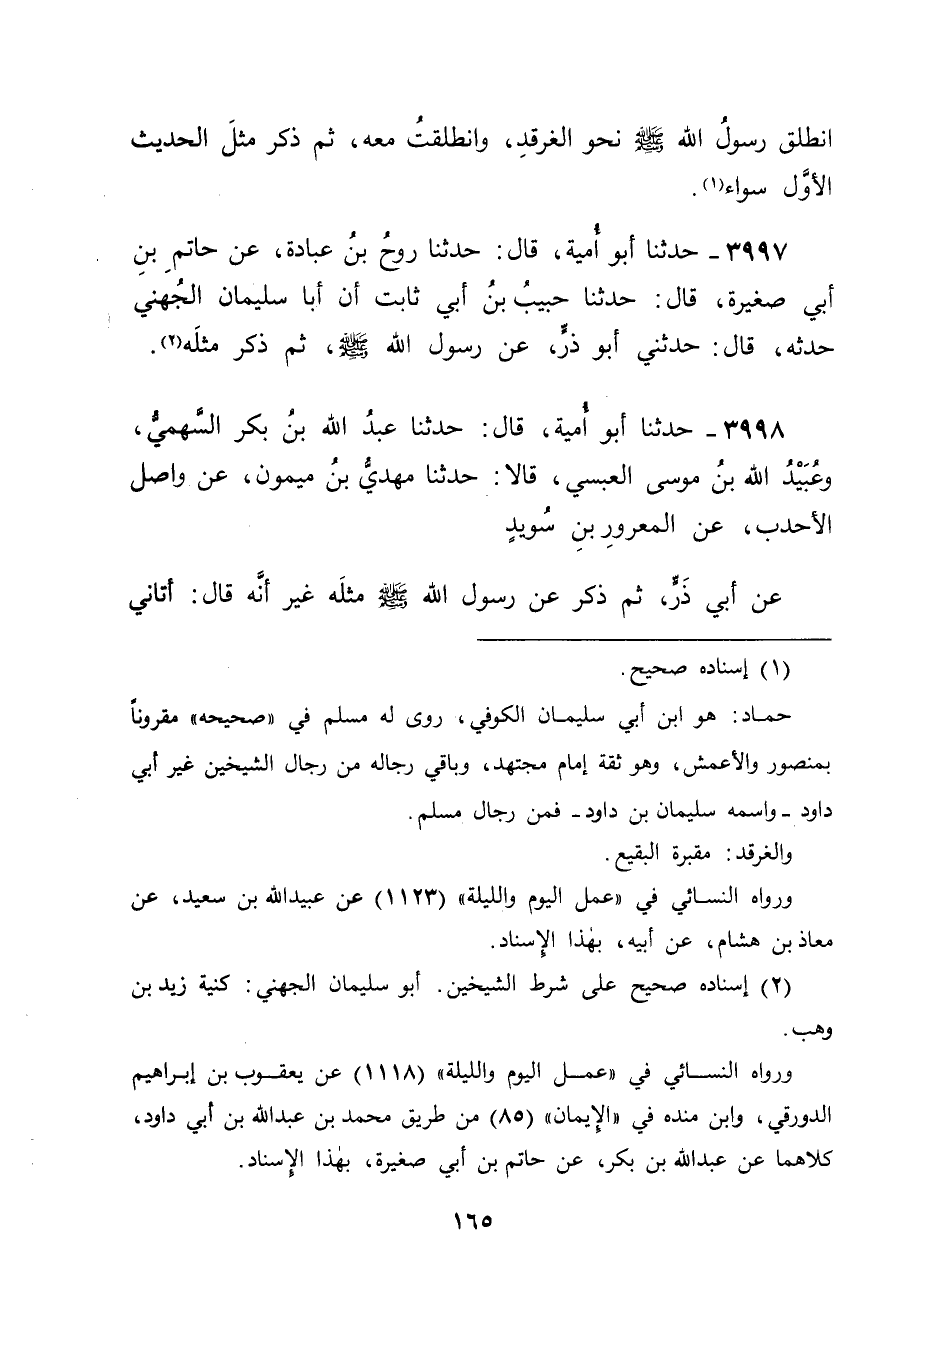 انطلق رسولُ الله ﷺ نحو الغرقدِ، وانطلقتُ معه، ثم ذكر مثلَ الحديث
الأوَّل سواء(١).
٣٩٩٧ ـ حدثنا أبو أُمية، قال: حدثنا روحُ بنُ عبادة، عن حاتمِ بنِ
أبي صغيرة، قال: حدثنا حبيبُ بنُ أبي ثابت أن أبا سليمان الجُهني
حدثه، قال: حدثني أبو ذرٍّ، عن رسول الله ﷺ، ثم ذكر مثلَه(٢).
٣٩٩٨ ـ حدثنا أبو أُمية، قال: حدثنا عبدُ الله بنُ بكر السَّهميُّ،
وعُبَيْدُ الله بنُ موسى العبسي، قالا: حدثنا مهديُّ بنُ ميمون، عن واصل
الأحدب، عن المعرورِ بنِ سُويدٍ
عن أبي ذَرٍّ، ثم ذكر عن رسول الله ﷺ مثلَه غير أنَّه قال: أتاني
(١) إسناده صحيح.
حماد: هو ابن أبي سليمان الكوفي، روى له مسلم في «صحيحه» مقروناً
بمنصور والأعمش، وهو ثقة إمام مجتهد، وباقي رجاله من رجال الشيخين غير أبي
داود ـ واسمه سليمان بن داود ـ فمن رجال مسلم.
والغرقد: مقبرة البقيع.
ورواه النسائي في «عمل اليوم والليلة» (١١٢٣) عن عبيدالله بن سعيد، عن
معاذ بن هشام، عن أبيه، بهٰذا الإسناد.
(٢) إسناده صحيح على شرط الشيخين. أبو سليمان الجهني: كنية زيد بن
وهب.
ورواه النسائي في «عمل اليوم والليلة» (١١١٨) عن يعقوب بن إبراهيم
الدورقي، وابن منده في «الإيمان» (٨٥) من طريق محمد بن عبدالله بن أبي داود،
كلاهما عن عبدالله بن بكر، عن حاتم بن أبي صغيرة، بهٰذا الإسناد.
١٦٥